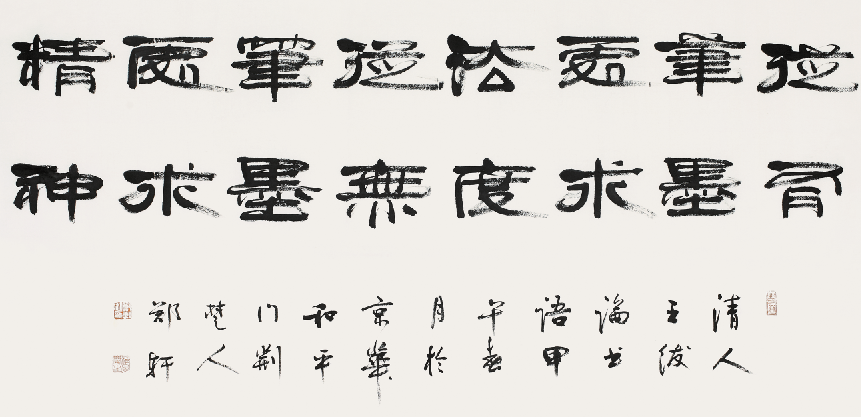 從有
筆墨
處求
法度
從無
筆墨
處求
精神
清人
王
論书
語甲
午春
月於
京華
和平
门荆
楚人
鄭軒